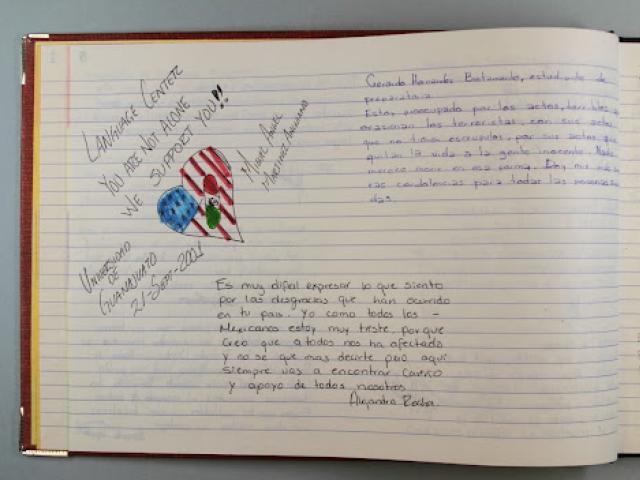 LANGUAGE CENTER
YOU ARE NOT ALONE
WE SUPPORT YOU!!
MIGUEL ANGEL
MARTINEZ
UNIVERSIDAD
DE
GUANAJUATO
21-SEPT-2001
Gerardo Hernandez Bustamante, estudiante de
preparatoria.
Estoy preocupado por los actos, terribles q
ocasionan los terroristas, con sus actos
que no tienen escrupulos, por sus actos que
quitan la vida a la gente inocente. Nadie
merece morir en esa forma. Doy mis
ras condolencias para todas las
das.
Es muy difícil expresar lo que siento
por las desgracias que han ocurrido
en tu pais. Yo como todos los -
Mexicanos estoy muy triste, porque
Creo que a todos nos ha afectado
y no se que mas decirte pero aqui
siempre vas a encontrar Cariño
y apoyo de todos nosotros
Alejandra Rocha